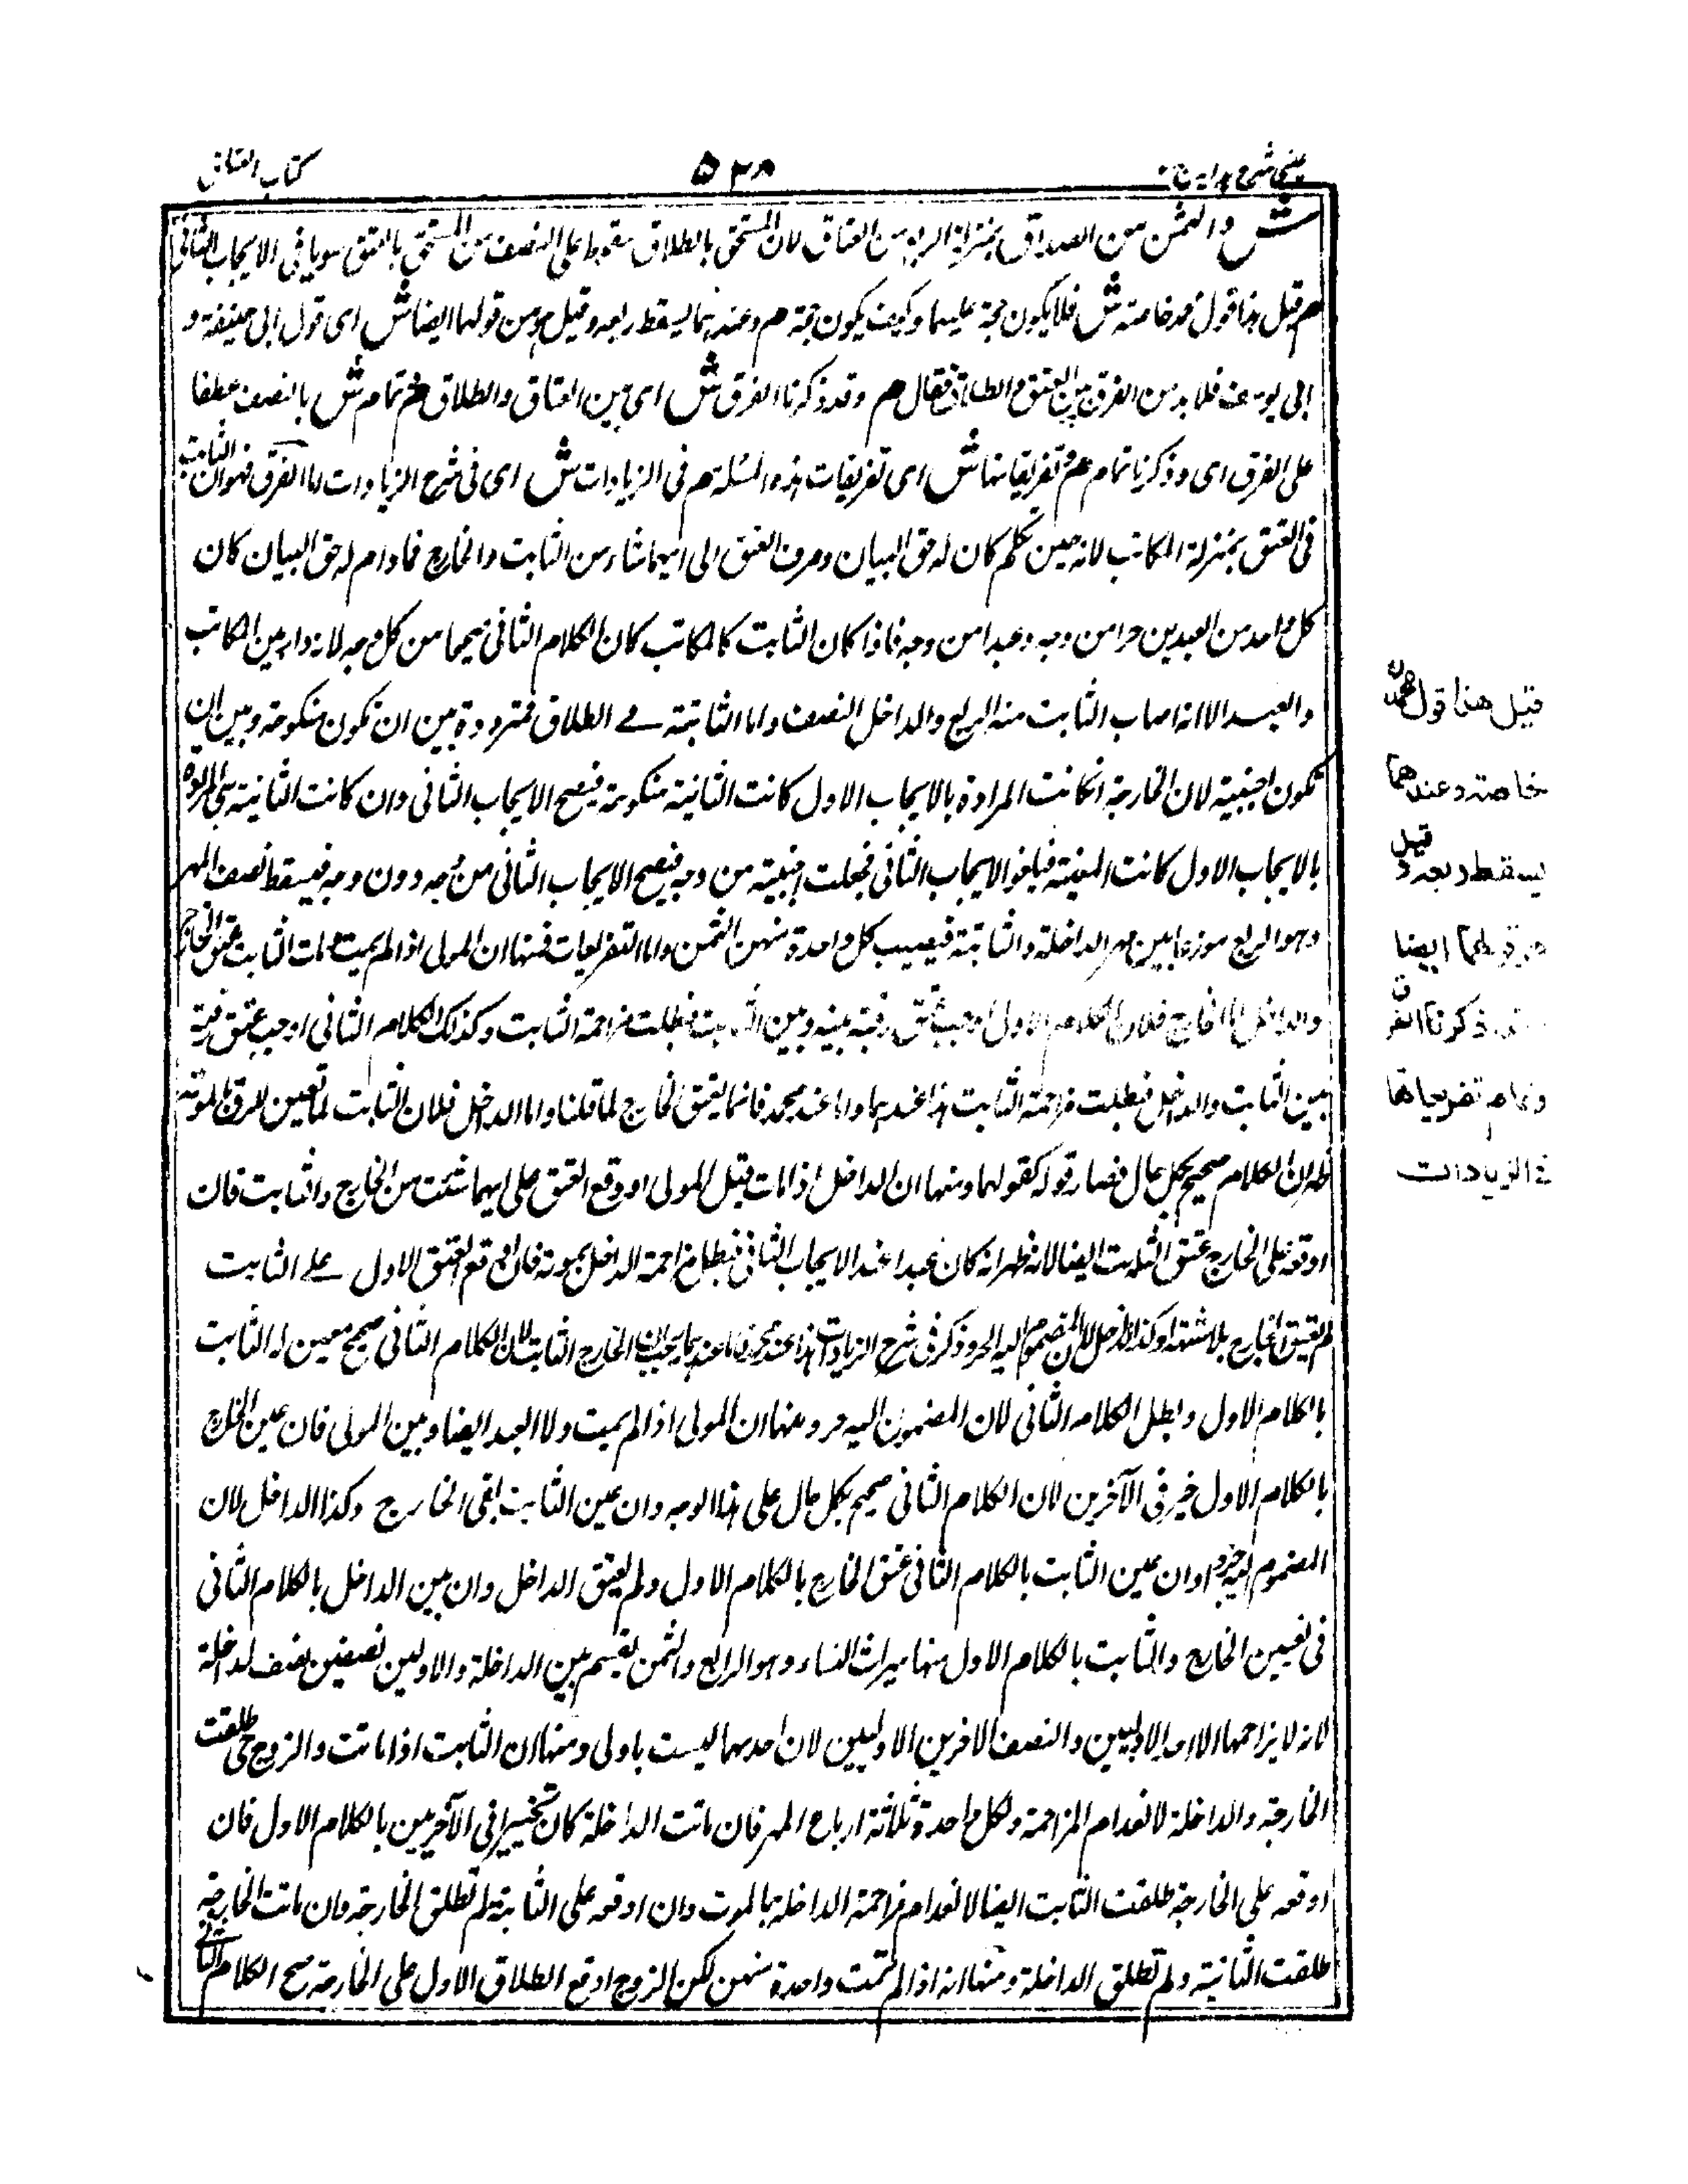 عینی شرح هدایه ج۲
۵۲۸
کتاب العتاق
ش والثمن من الصداق بمنزلة الربع من العتاق لان المستحق بالطلاق سقوط علی النصف من المستحق بالعتق سویا فی الایجاب الثانی
م قیل هذا قول محمد خاصة ش فلا یکون حجة علیهما وکیف یکون حجة م وعندهما یسقط ربعه وقیل هو من قولهما ایضا ش ای قول ابی حنیفة و
ابی یوسف فلا بد من الفرق بین العتق والطلاق فقال م وقد ذکرنا الفرق ش ای بین العتاق والطلاق م وتمام ش بالنصف عطفا
علی الفرق ای وذکرنا تمام م تفریقاتها ش ای تفریقات هذه المسئلة م فی الزیادات ش ای فی شرح الزیادات اما الفرق فهو ان الثابت
فی العتق بمنزلة المکاتب لانه حین تکلم کان له حق البیان وصرف العتق الی ایهما شاء من الثابت والخارج فما دام له حق البیان کان
کل واحد من العبدین حرا من وجه وعبدا من وجه فاذا کان الثابت کالمکاتب کان الکلام الثانی صحیحا من کل وجه لانه دار بین المکاتب
والعبد الا انه اصاب الثابت منه الربع والداخل النصف واما الثابتة فے الطلاق فمترددة بین ان تکون منکوحة وبین ان
تکون اجنبیة لان الخارجة انکانت المرادة بالایجاب الاول کانت الثانیة منکوحة فیصح الایجاب الثانی وان کانت الثانیة هی المرادة
بالایجاب الاول کانت المعینة فیلغو الایجاب الثانی فجعلت اجنبیة من وجه فیصح الایجاب الثانی من وجه دون وجه فیسقط نصف المهر
وهو الربع موزعا بین مهر الداخلة والثابتة فیصیب کل واحدة منهن الثمن واما التفریعات فمنها ان المولی اذا لم یمت ومات الثابت عتق الخارج
والداخل اما الخارج فلان الکلام الاول اوجب عتق رقبة بینه وبین الثابت فبطلت مزاحمة الثابت وکذلک الکلام الثانی اوجب عتق رقبة
بین الثابت والداخل فبطلت مزاحمة الثابت هذا عندهما واما عند محمد فانما یعتق الخارج لما قلنا واما الداخل فلان الثابت لما تعین للرق بالموت
ظهر ان الکلام صحیح بکل حال فصار قوله کقولهما ومنها ان الداخل اذا مات قبل المولی اوقع العتق علی ایهما شئت من الخارج والثابت فان
اوقعه علی الخارج عتق الثابت ایضا لانه ظهر انه کان عبدا عند الایجاب الثانی فبطل مزاحمة الداخل بموته فان اوقع العتق الاول علے الثابت
لم یعتق الخارج بلا شبهة وکذا الداخل لان المضموم الیه الحر وذکر فی شرح الزیادات هذا عند محمد الخارج الثابت لان الکلام الثانی صحیح معین له الثابت
بالکلام الاول وبطل الکلام الثانی لان المضموم الیه حر ومنها ان المولی اذا لم یمت ولا العبد ایضا وبین المولی فان عین الخارج
بالکلام الاول خیر فی الآخرین لان الکلام الثانی صحیح بکل حال علی هذا الوجه وان عین الثابت بقی الخارج وکذا الداخل لان
المضموم الیه حر وان عین الثابت بالکلام الثانی عتق الخارج بالکلام الاول ولم یعتق الداخل وان بین الداخل بالکلام الثانی
فی تعیین الخارج والثابت بالکلام الاول منها میراث النساء وهو الرابع والثمن یقسم بین الداخلة والاولین نصفین نصف لداخلة
لانه لا یزاحمها الا احد الاولیین والنصف الاخر بین الاولیین لان احدیهما لیست باولی ومنها ان الثابت اذا ماتت والزوج حی طلقت
الخارجة والداخلة لانعدام المزاحمة ولکل واحدة ثلاثة ارباع المهر فان ماتت الداخلة کان تخییرا فی الآخریین بالکلام الاول فان
اوقعه علی الخارجة طلقت الثابت ایضا لانعدام مزاحمة الداخلة بالموت وان اوقعه علی الثابتة لم تطلق الخارجة وان ماتت الخارجة
طلقت الثانیة ولم تطلق الداخلة ومنها انه اذا لم تمت واحدة منهن لکن الزوج اوقع الطلاق الاول علی الخارجة صح الکلام الثانی
قیل هذا قول محمد
خاصة وعندهما
یسقط ربعه وقیل
هو قولهما ایضا
وقد ذکرنا الفرق
وتمام تفریعاتها
فی الزیادات